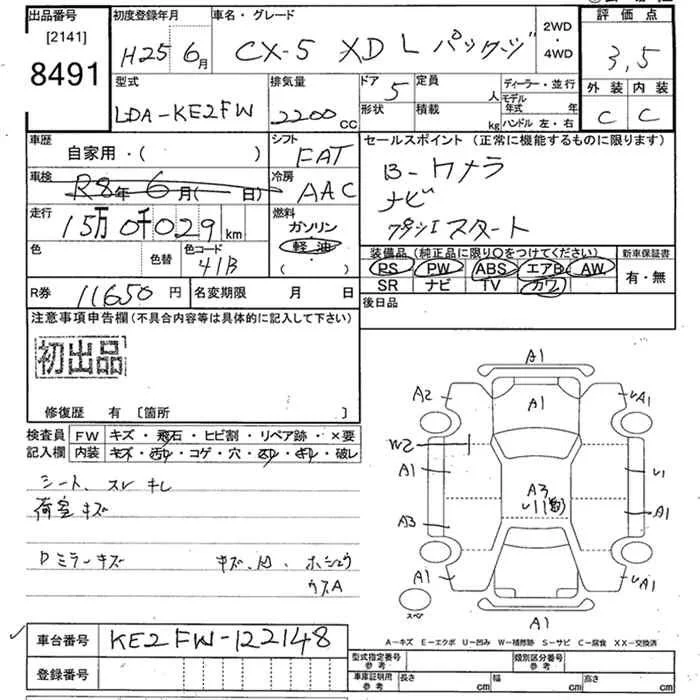 出品番号
[2141]
8491
初度登録年月
H25 6月
車名・グレード
CX-5 XD L パッケージ
2WD
・
4WD
評価点
3,5
外装 内装
C C
型式
LDA-KE2FW
排気量
2200cc
ドア
5
形状
定員
人
積載
kg
ディーラー・並行
モデル年式 年
ハンドル 左・右
車歴
自家用・( )
シフト
FAT
セールスポイント (正常に機能するものに限ります)
B-カメラ
ナビ
プッシュスタート
車検
R8年 6月( 日)
冷房
AAC
走行
15万0千029km
燃料
ガソリン
・
軽油
・
( )
色
色替
色コード
41B
装備品 (純正品に限り○をつけてください)
PS PW ABS エアB AW
SR ナビ TV カワ
新車保証書
有・無
R券 11650円
名変期限 月 日
後日品
注意事項申告欄 (不具合内容等は具体的に記入して下さい)
初出品
修復歴 有 [箇所 ]
検査員記入欄
FW キズ・飛石・ヒビ割・リペア跡・×要
内装 キズ・汚レ・コゲ・穴・スレ・キレ・破レ
シート、スレ キレ
荷室 キズ
Dミラーキズ
キズ、凹、ホシュウ
ウスA
A1
A2
A1
UA1
W2
A1
U1
A3
A1
A3
A1
A1
A1
スペア
A-キズ E-エクボ U-凹み W-補修跡 S-サビ C-腐食 XX-交換済
車台番号
KE2FW-122148
登録番号
型式指定番号
参考
類別区分番号
参考
車庫証明用
参考
長さ cm
幅 cm
高さ cm